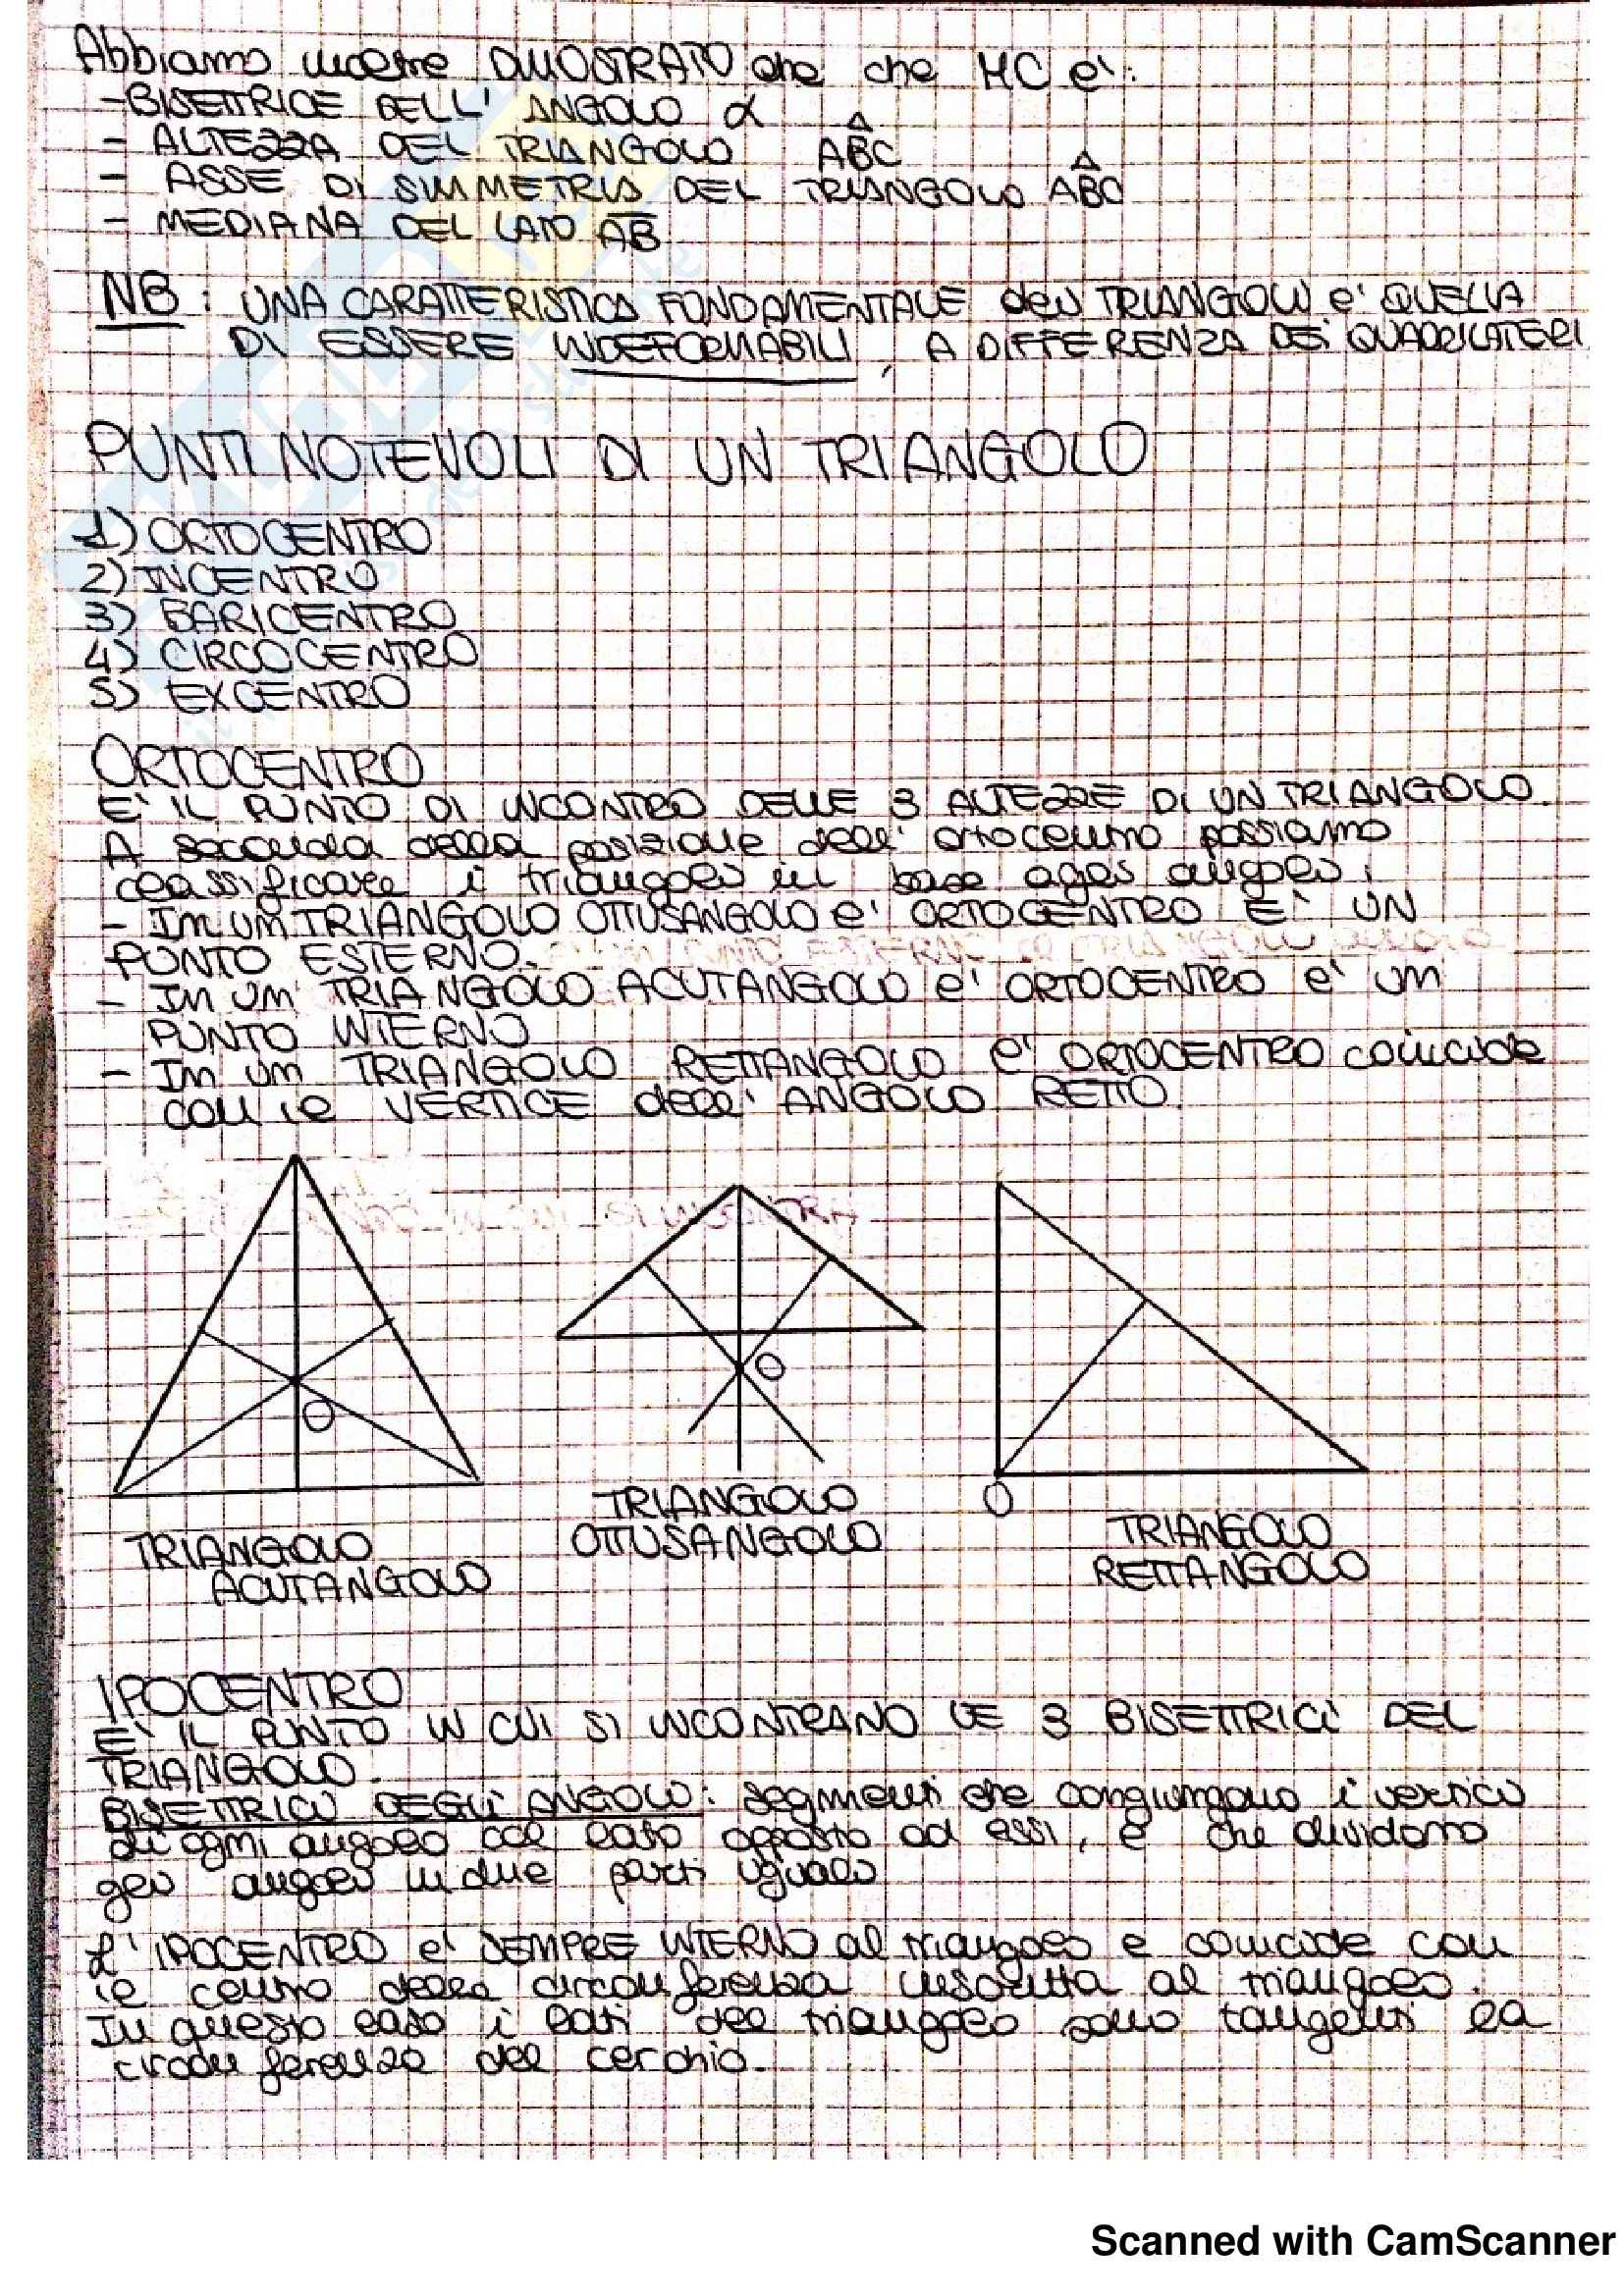 Abbiamo inoltre DIMOSTRATO che che HC e':
-BISETTRICE DELL' ANGOLO α
- ALTEZZA DEL TRIANGOLO ABC
- ASSE DI SIMMETRIA DEL TRIANGOLO ABC
- MEDIANA DEL LATO AB
NB: UNA CARATTERISTICA FONDAMENTALE dei TRIANGOLI e' QUELLA
DI ESSERE INDEFORMABILI, A DIFFERENZA DEI QUADRILATERI
PUNTI NOTEVOLI DI UN TRIANGOLO
1) ORTOCENTRO
2) INCENTRO
3) BARICENTRO
4) CIRCOCENTRO
5) EXCENTRO
ORTOCENTRO
E' IL PUNTO DI INCONTRO DELLE 3 ALTEZZE DI UN TRIANGOLO.
A seconda della posizione dell' ortocentro possiamo
classificare i triangoli in base agli angoli:
- In un TRIANGOLO OTTUSANGOLO l' ORTOCENTRO E' UN
PUNTO ESTERNO.
- In un TRIANGOLO ACUTANGOLO l' ORTOCENTRO e' un
PUNTO INTERNO
- In un TRIANGOLO RETTANGOLO l' ORTOCENTRO coincide
con il VERTICE dell' ANGOLO RETTO.
O
O
O
TRIANGOLO
ACUTANGOLO
TRIANGOLO
OTTUSANGOLO
TRIANGOLO
RETTANGOLO
IPOCENTRO
E' IL PUNTO IN CUI SI INCONTRANO LE 3 BISETTRICI DEL
TRIANGOLO.
BISETTRICI DEGLI ANGOLO: segmenti che congiungono i vertici
di ogni angolo col lato opposto ad essi, e che dividono
gli angoli in due parti uguali
L' IPOCENTRO e' SEMPRE INTERNO al triangolo e coincide con
il centro della circonferenza inscritta al triangolo.
In questo caso i lati del triangolo sono tangenti la
circonferenza del cerchio.
Scanned with CamScanner